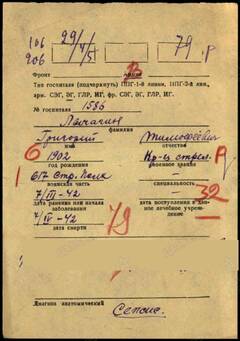 106
206
29/V/5
79 .р
Фронт армия
Тип госпиталя (подчеркнуть) ППГ-1-й линии, ППГ-2-й лин.,
арм. СЭГ, ЭГ, ГЛР, ИГ, фр. СЭГ, ЭГ, ГЛР, ИГ.
№ госпиталя 1586
фамилия
Григорий Тимофеевич
имя отчество
1902 Кр-ец стрел.
год рождения военное звание
617 Стр. Полк
воинская часть специальность
7/III-42 32
дата ранения или начала заболевания
дата поступления в данное лечебное учреждение
7/IV-42
дата смерти
79
Диагноз анатомический Сепсис.